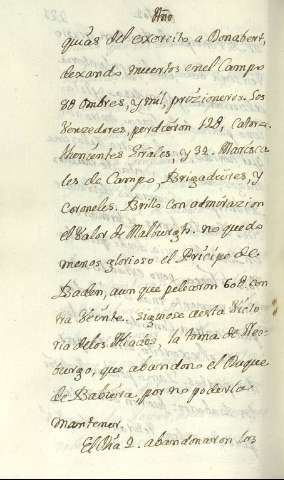 Año
quias del exercito, a Donabert,
dexando muertos en el Campo
8U ombres, y mil, prizioneros. Los
Venzedores, perdieron 12U, Catorz.
thenientes Grales, y 32. Marisca
les de Campo, Brigadieres, y
Coroneles. Brillo con admirazion
el Valor de Malburgh. no quedo
menos glorioso el Principe de
Baden, aun que pelearon 60U con
tra Veinte. siguiose a esta Victo
ria de los Aliados, la toma de Neo-
burgo, que abandono el Duque
de Babiera, por no poderla
mantener.
El Dia 2. abandonaron los